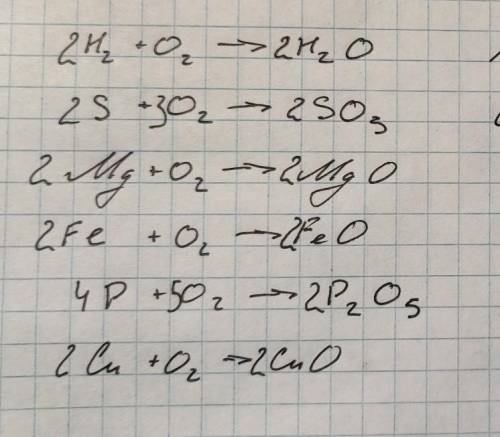 2H₂ + O₂ → 2H₂O
2S + 3O₂ → 2SO₃
2Mg + O₂ → 2MgO
2Fe + O₂ → 2FeO
4P + 5O₂ → 2P₂O₅
2Cu + O₂ → 2CuO